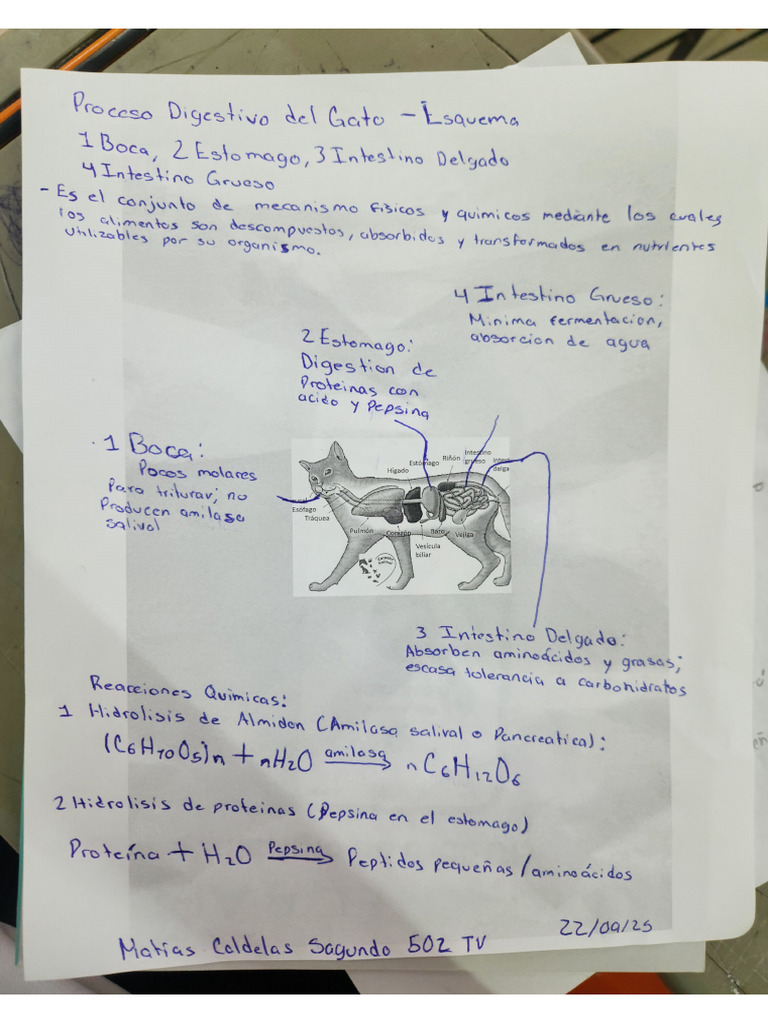 Proceso Digestivo del Gato - Esquema
1 Boca, 2 Estomago, 3 Intestino Delgado
4 Intestino Grueso
- Es el conjunto de mecanismo fisicos y quimicos mediante los cuales
los alimentos son descompuestos, absorbidos y transformados en nutrientes
utilizables por su organismo.
4 Intestino Grueso:
Minima fermentacion,
absorcion de agua
2 Estomago:
Digestion de
Proteinas con
acido y Pepsina
1 Boca:
Pocos molares
Para triturar; no
Producen amilasa
salival
Intestino
grueso
Riñón
Estómago
Hígado
Esófago
Tráquea
Pulmón
Corazón
Bazo
Vejiga
Vesícula
biliar
3 Intestino Delgado:
Absorben aminoácidos y grasas;
escasa tolerancia a carbohidratos
Reacciones Quimicas:
1 Hidrolisis de Almidon (Amilasa salival o Pancreatica):
(C6H10O5)n + nH2O amilasa → nC6H12O6
2 Hidrolisis de proteinas (Pepsina en el estomago)
Proteína + H2O Pepsina → Peptidos pequeñas/aminoácidos
22/09/25
Matias Caldelas Sagundo 502 TV